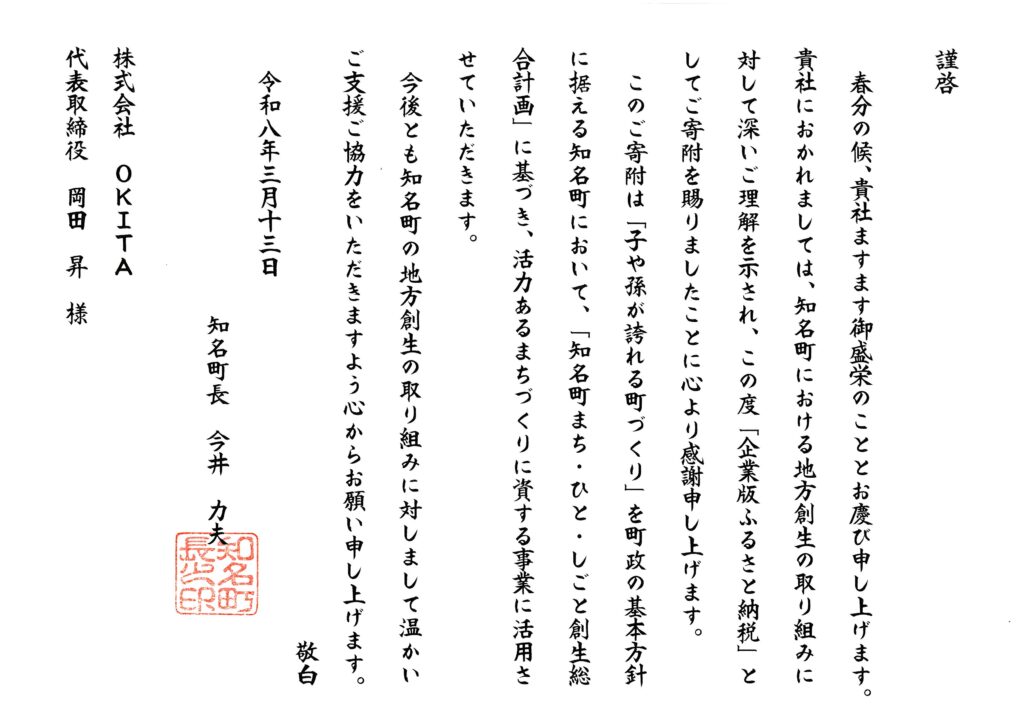 謹啓
春分の候、貴社ますます御盛栄のこととお慶び申し上げます。
貴社におかれましては、知名町における地方創生の取り組みに
対して深いご理解を示され、この度「企業版ふるさと納税」と
してご寄附を賜りましたことに心より感謝申し上げます。
このご寄附は「子や孫が誇れる町づくり」を町政の基本方針
に据える知名町において、「知名町まち・ひと・しごと創生総
合計画」に基づき、活力あるまちづくりに資する事業に活用さ
せていただきます。
今後とも知名町の地方創生の取り組みに対しまして温かい
ご支援ご協力をいただきますよう心からお願い申し上げます。
敬白
令和八年三月十三日
知名町長 今井 力夫
知名町
長之印
株式会社 OKITA
代表取締役 岡田 昇 様